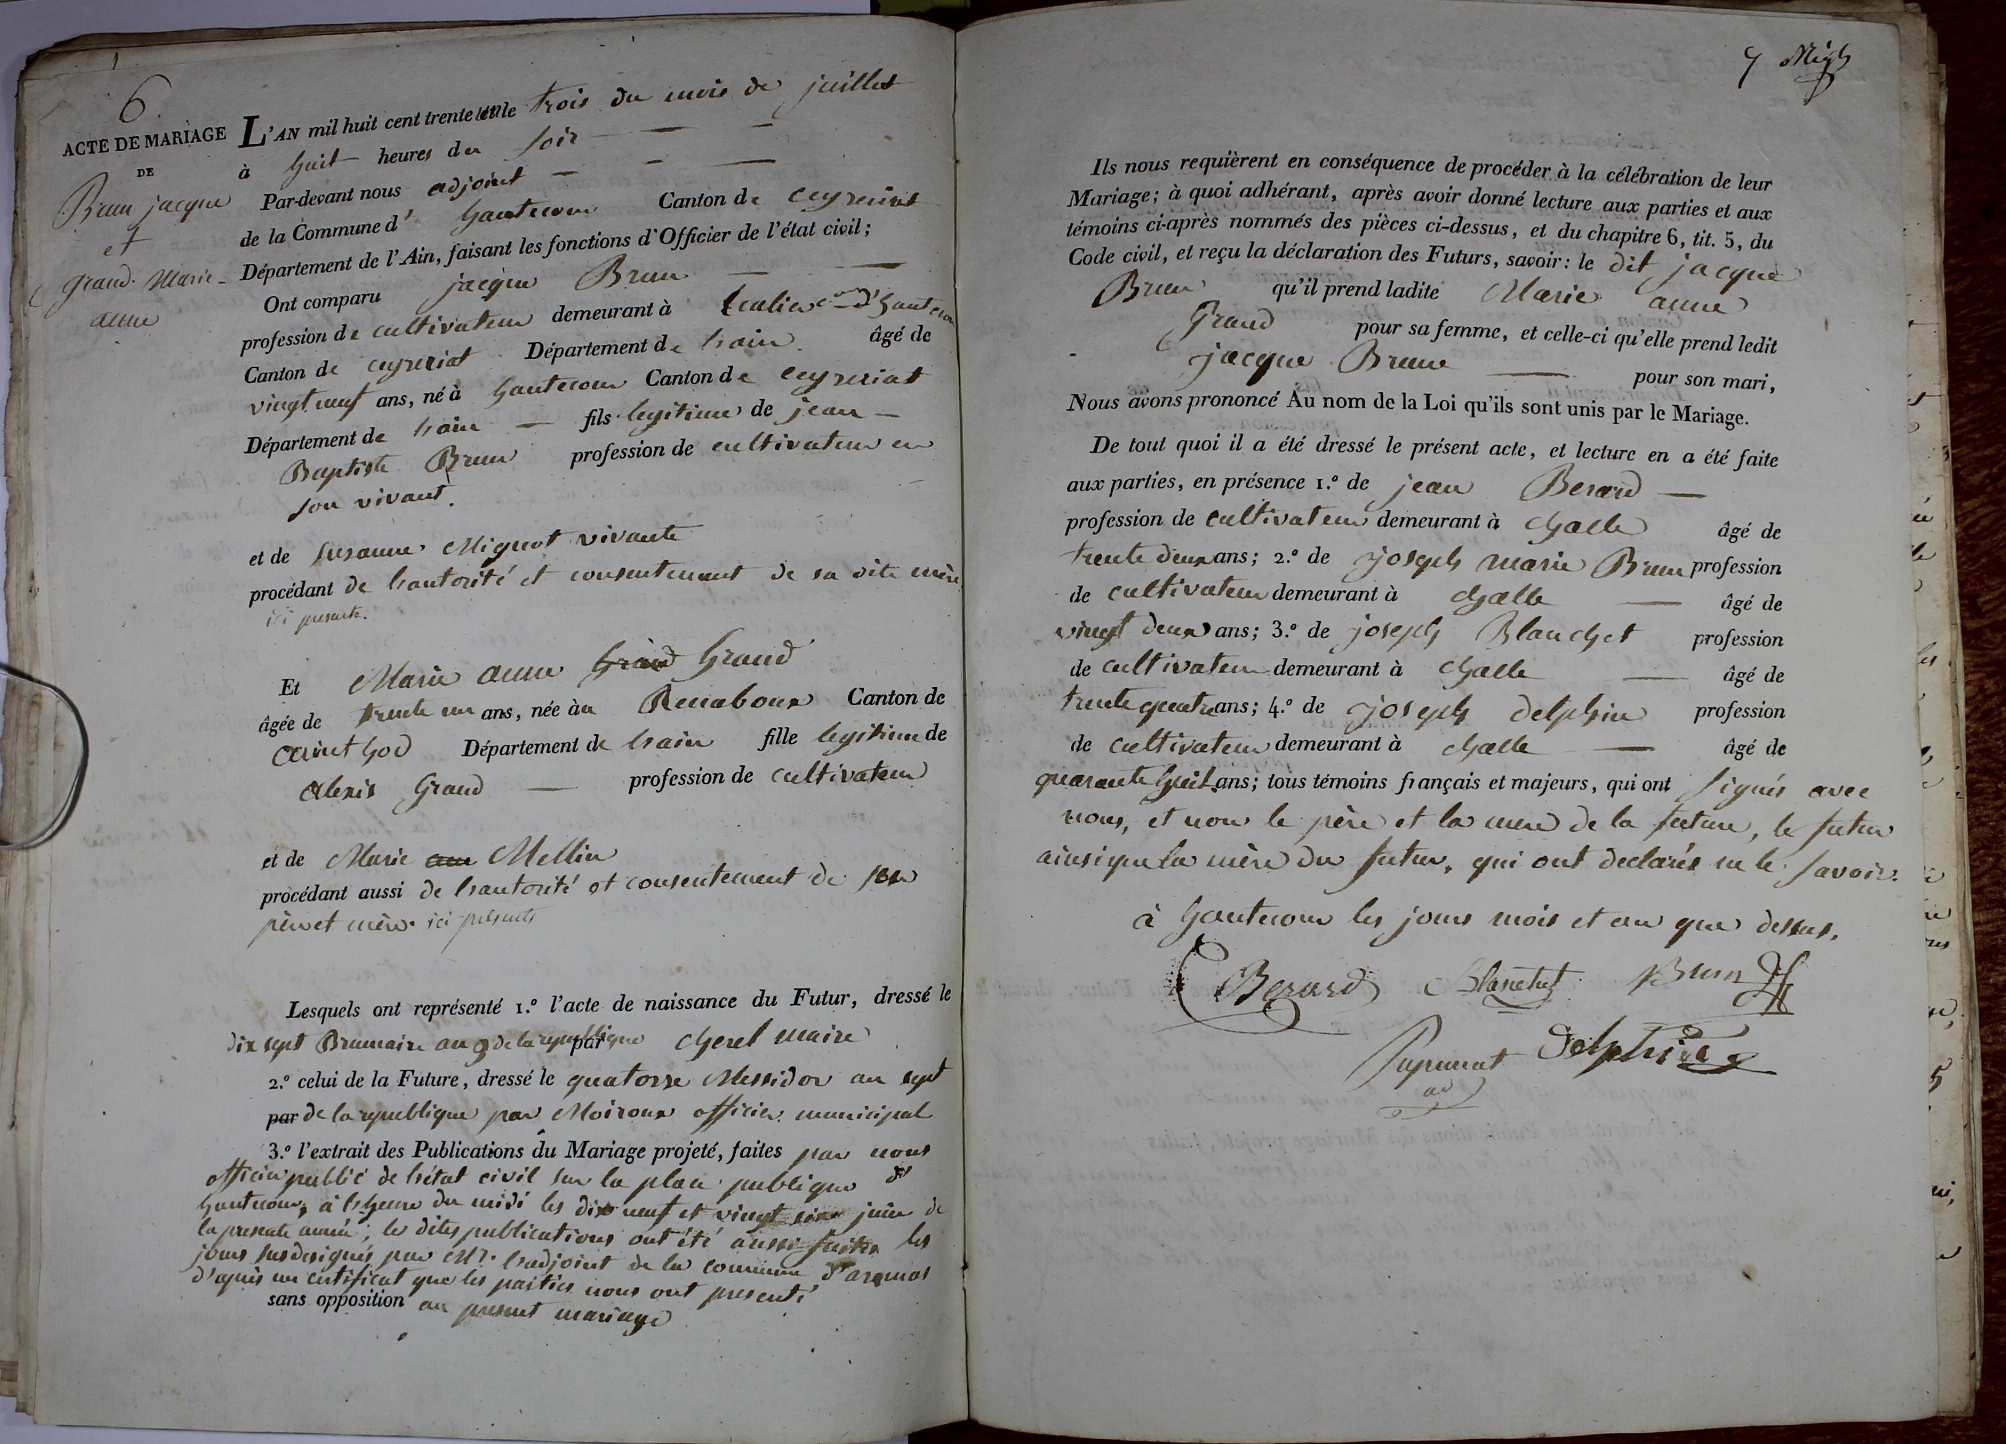 6
ACTE DE MARIAGE
DE
Brun jacque
et
grand Marie
anne
L'AN mil huit cent trente un le trois du mois de juillet
à huit heures du soir
Par-devant nous adjoint
de la Commune d' hautecour Canton de ceyzeriat
Département de l'Ain, faisant les fonctions d'Officier de l'état civil;
Ont comparu jacque Brun
profession de cultivateur demeurant à d'hautecour
Canton de ceyzeriat Département de hain âgé de
vingt neuf ans, né à hautecour Canton de ceyzeriat
Département de hain fils legitime de jean
Baptiste Brun profession de cultivateur en
son vivant.
et de susanne Mignot vivante
procédant de hautorité et consentement de sa dite mère
ici presente.
Et Marie anne Grand Grand
âgée de trente un ans, née à Canton de
Département de hain fille legitime de
alexis Grand profession de cultivateur
et de Marie ann Mellin
procédant aussi de hautorité et consentement de ses
père et mère ici présents
Lesquels ont représenté 1.º l'acte de naissance du Futur, dressé le
dix sept Brumaire an 9 de la republique par cherel maire
2.º celui de la Future, dressé le quatorse Messidor an sept
par de la republique par Moiroux officier municipal
3.º l'extrait des Publications du Mariage projeté, faites par nous
officier public de hétat civil sur la place publique d'
hautecour, à lheure du midi les dix neuf et vingt six juin de
la presente année, les dites publications ont été aussi faites les
jours susdesignés par Mr. hadjoint de la commune d'
d'après un certificat que les parties nous ont presenté
sans opposition au present mariage
7
Ils nous requièrent en conséquence de procéder à la célébration de leur
Mariage; à quoi adhérant, après avoir donné lecture aux parties et aux
témoins ci-après nommés des pièces ci-dessus, et du chapitre 6, tit. 5, du
Code civil, et reçu la déclaration des Futurs, savoir: le dit jacque
Brun qu'il prend ladite Marie anne
Grand pour sa femme, et celle-ci qu'elle prend ledit
jacque Brun pour son mari,
Nous avons prononcé Au nom de la Loi qu'ils sont unis par le Mariage.
De tout quoi il a été dressé le présent acte, et lecture en a été faite
aux parties, en présence 1.º de jean Berard
profession de cultivateur demeurant à challe âgé de
trente deux ans; 2.º de joseph marie Brun profession
de cultivateur demeurant à challe âgé de
vingt deux ans; 3.º de joseph Blanchet profession
de cultivateur demeurant à challe âgé de
trente quatre ans; 4.º de joseph delphin profession
de cultivateur demeurant à challe âgé de
quarante huit ans; tous témoins français et majeurs, qui ont signés avec
nous, et non le père et la mère de la future, le futur
ainsi que la mère du futur, qui ont declarés ne le savoir.
à hautecour les jours mois et an que dessus.
Berard Blanchet Brun
Delphin